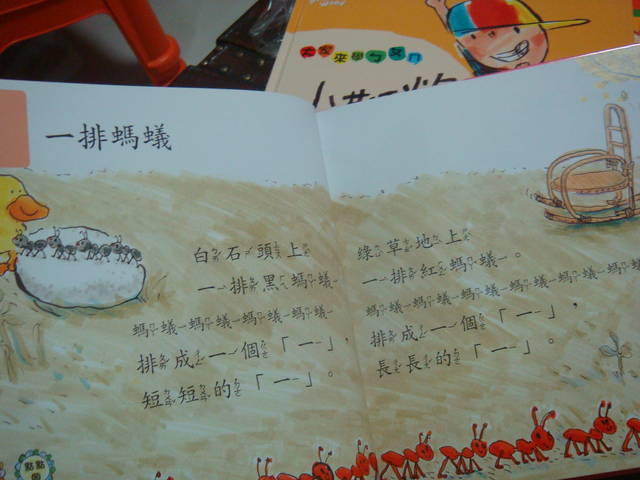 大家來學ㄅㄆㄇ
一排螞蟻
白石頭上
一排黑螞蟻
螞蟻螞蟻螞蟻螞蟻螞蟻
排成一個「一」，
短短的「一」。
綠草地上
一排紅螞蟻。
螞蟻螞蟻螞蟻螞蟻螞蟻螞蟻
排成一個「一」，
長長的「一」。
點點